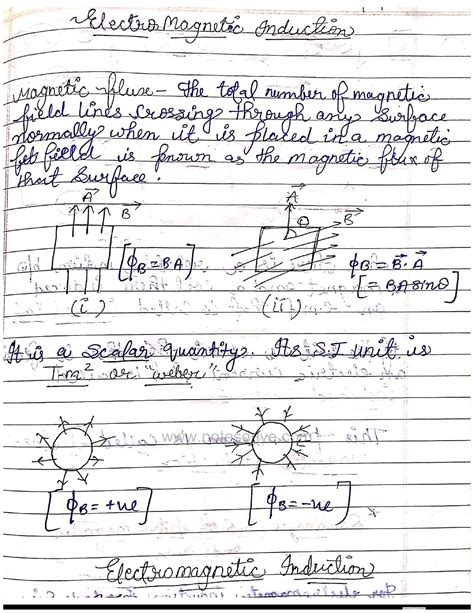 ElectroMagnetic Induction
Magnetic fluxe - The total number of magnetic
field lines crossing through any surface
normally when it is placed in a magnetic
field is known as the magnetic flux of
that surface.
A⃗ B⃗ A⃗ θ B⃗
[ϕB = BA] ϕB = B⃗. A⃗
[= BA sinθ
(i) (ii)
It is a scalar quantity. Its S.I unit is
T-m² or "weber"
[ϕB = +ve] [ϕB = -ve]
Electromagnetic Induction